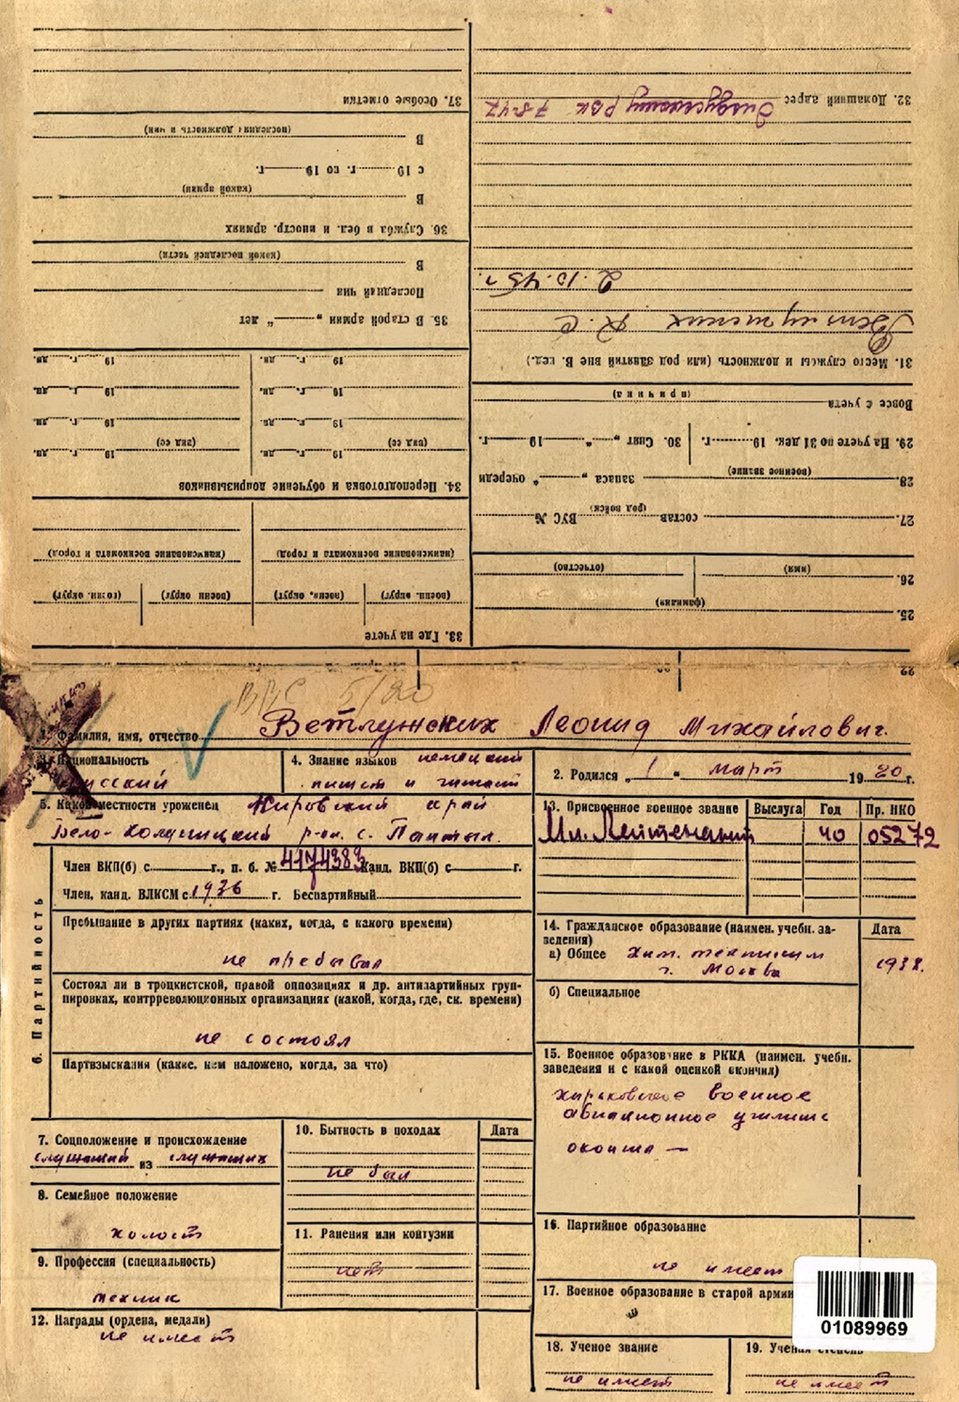 37. Особые отметки
В
(последняя должность и чин)
с 19 г. по 19 г.
В
(какой армии)
36. Служба в бел. и иностр. армиях
В
(какой последней части)
Последний чин
35. В старой армии „ “ лет
19 г. дн. 19 г. дн.
19 г. дн. 19 г. дн.
19 г. дн. 19 г. дн.
(вид сс) (вид сс)
19 г. дн. 19 г. дн.
34. Переподготовка и обучение допризывников
(наименование военкомата и город) (наименование военкомата и город)
(военн. округ) (военн. округ) (военн. округ) (военн. округ)
33. Где на учете
32. Домашний адрес РВК 7-8-47
2.10.45 г.
Ветлужских К. С
31. Место службы и должность (или род занятий вне В. вед.)
Вовсе с учета
(причина)
29. На учете по 31 дек. 19 г. 30. Снят „ “ 19 г.
28. запаса „ “ очереди
(военное звание)
27. состав ВУС №
(род войск)
26.
(имя) (отчество)
25.
(фамилия)
22
ВВС 5/20
1. Фамилия, имя, отчество Ветлужских Леонид Михайлович.
3. Национальность русский
4. Знание языков немецкий
пишет и читает
2. Родился „1“ март 1920 г.
5. Какой местности уроженец Кировский край
Бело-Холуницкий р-он. с. Пантыл.
13. Присвоенное военное звание Выслуга Год Пр. НКО
Мл. Лейтенант 40 05272
6. Партийность
Член ВКП(б) с г., п. б. № 4174383 Канд. ВКП(б) с
Член, канд. ВЛКСМ с 1936 г. Беспартийный
Пребывание в других партиях (каких, когда, с какого времени)
не пребывал
Состоял ли в троцкистской, правой оппозициях и др. антипартийных груп-
пировках, контрреволюционных организациях (какой, когда, где, ск. времени)
не состоял
Партвзыскания (какие, кем наложено, когда, за что)
14. Гражданское образование (наимен. учебн. за-
ведения) Дата
а) Общее Хим. техникум
г. Москва 1938.
б) Специальное
15. Военное образование в РККА (наимен. учебн.
заведения и с какой оценкой окончил)
харьковское военное
авиационное училище
окончил —
7. Соцположение и происхождение
служащий из служащих
8. Семейное положение
холост
9. Профессия (специальность)
техник
10. Бытность в походах Дата
не был
11. Ранения или контузии
нет
12. Награды (ордена, медали)
не имеет
16. Партийное образование
не имеет
17. Военное образование в старой армии
18. Ученое звание
не имеет
19. Ученая степень
не имеет
01089969